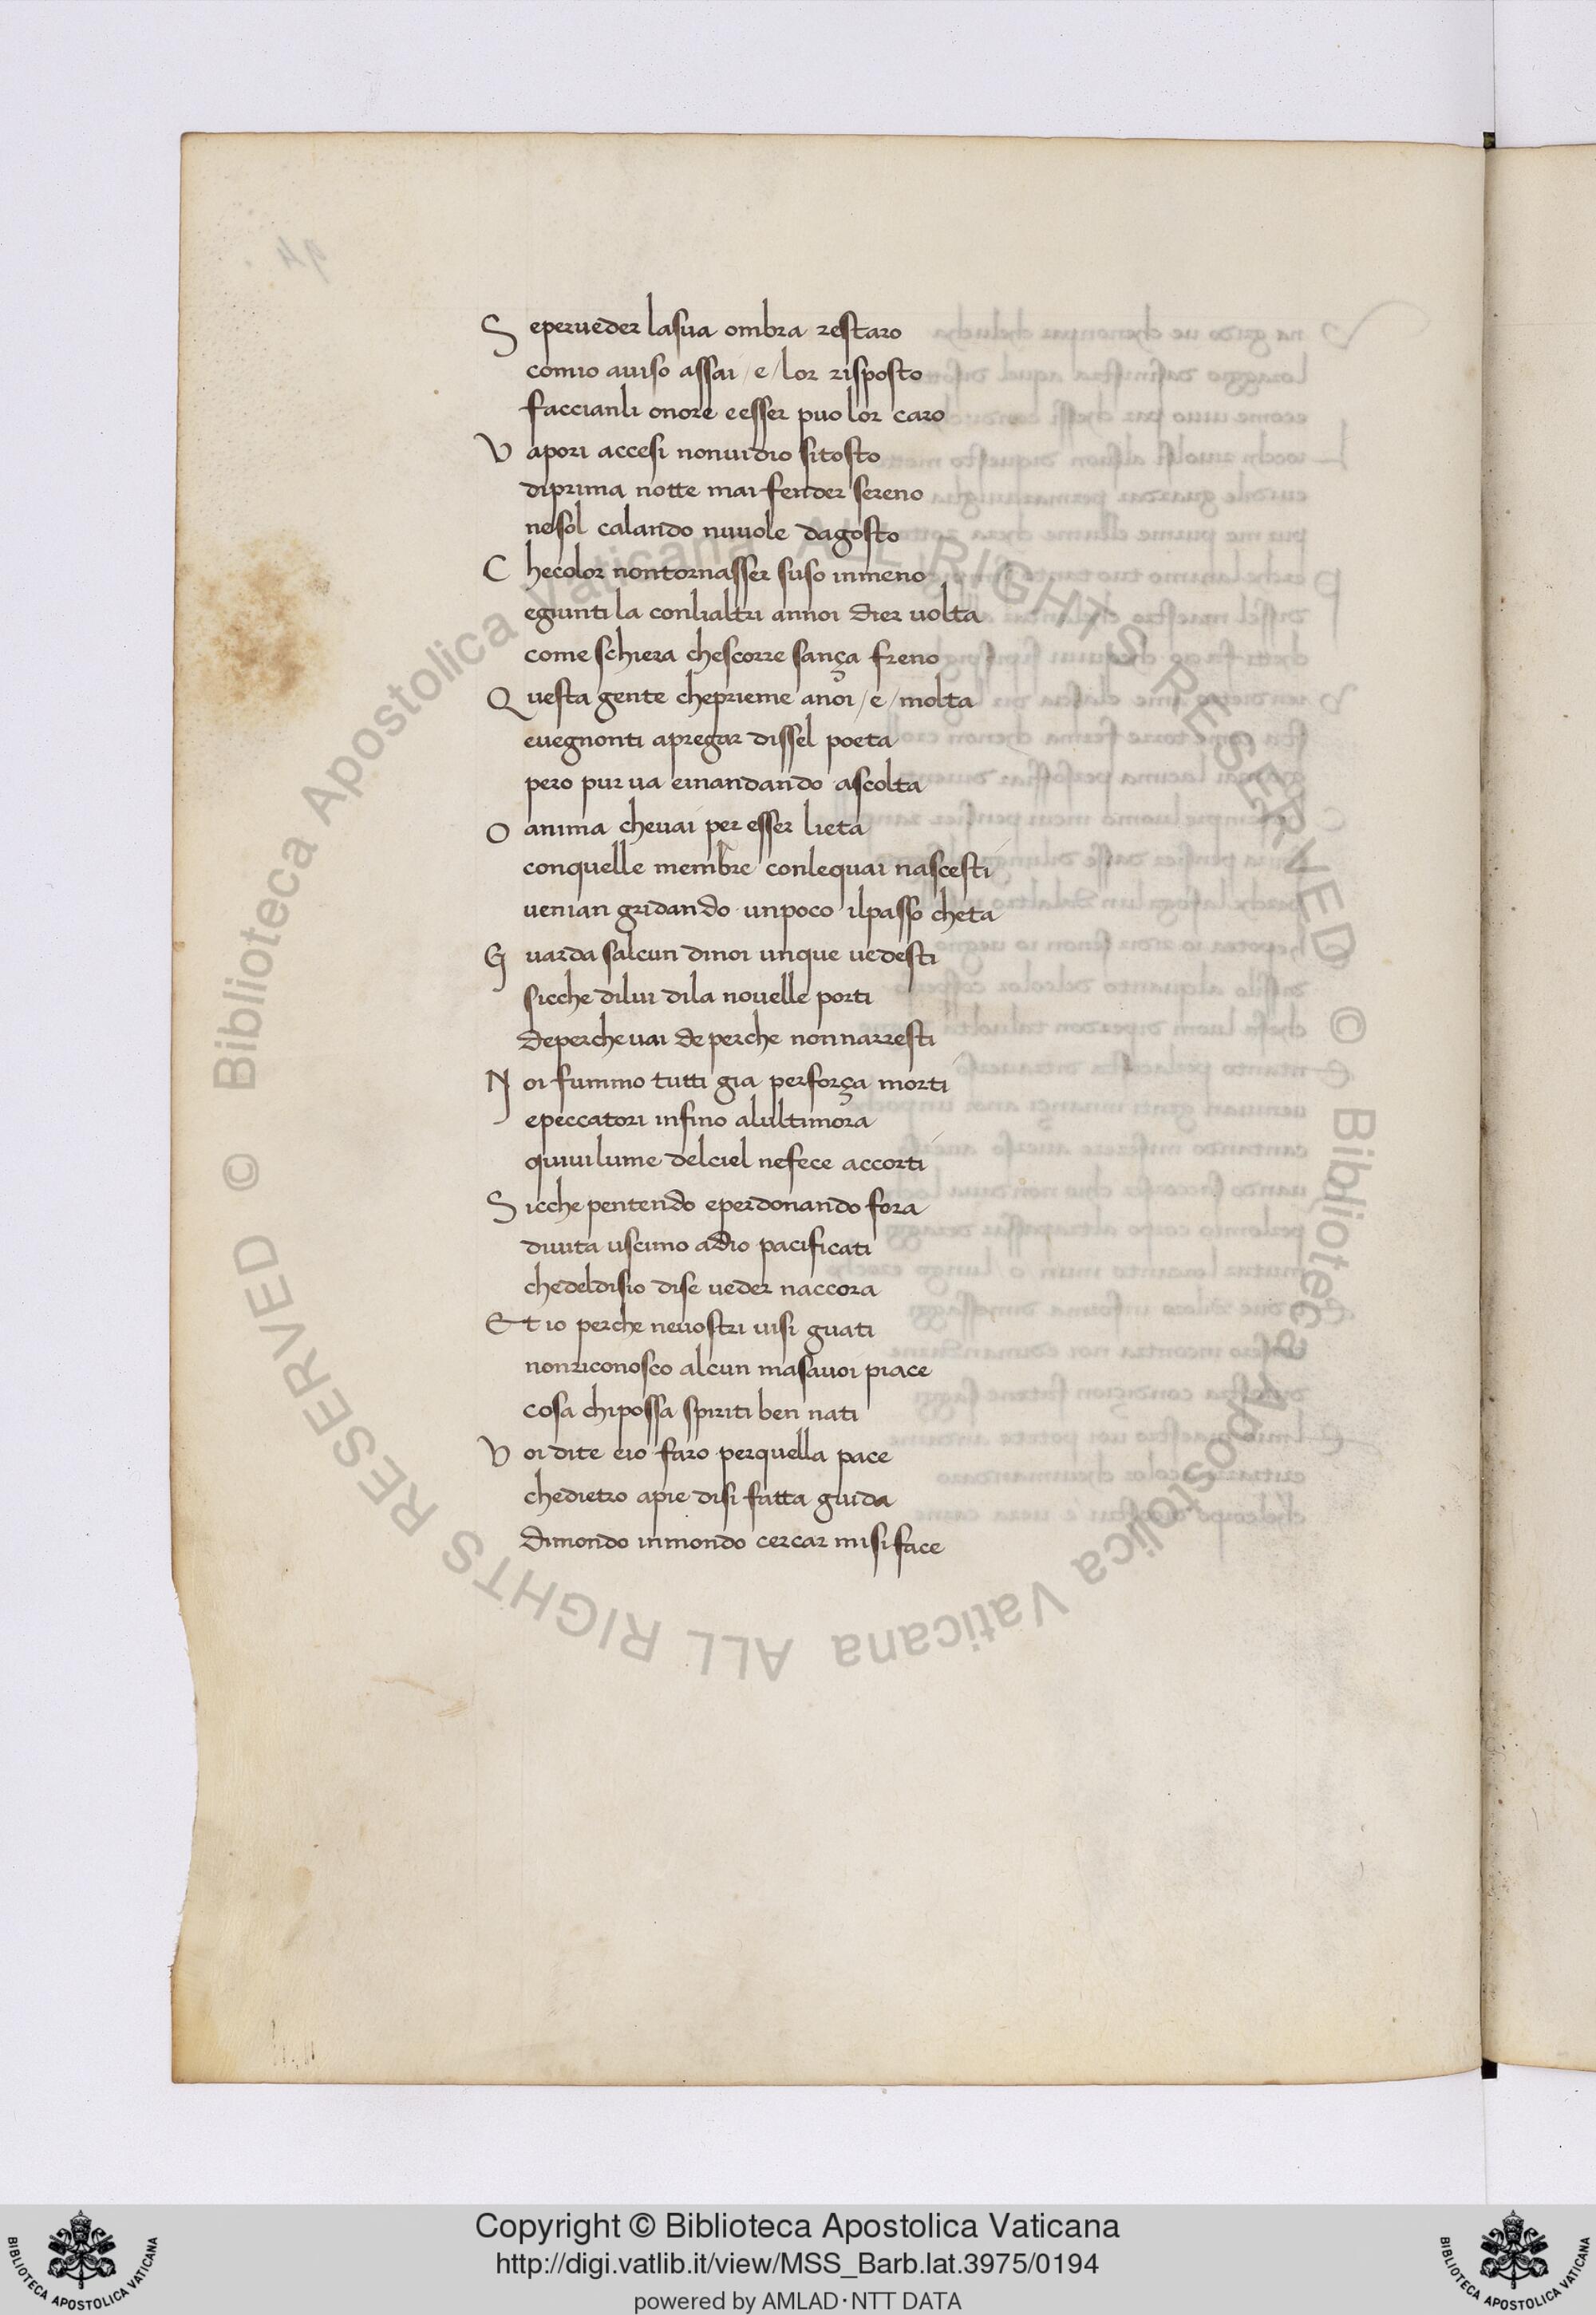 S eperueder lasua ombra restaro
comio auiso assai / e / lor risposto
faccianli onore eesser puo lor caro
V apori accesi nonuidio sitosto
diprima notte mai fender sereno
nesol calando nuuole dagosto
C hecolor nontornasser suso inmeno
egiunti la conlialtri annoi dier uolta
come schiera chescorre sança freno
Q uesta gente cheprieme anoi / e / molta
euegnonti apregar dissel poeta
pero pur ua einandando ascolta
O anima cheuai per esser lieta
conquelle membre conlequai nascesti
uenian gridando unpoco ilpasso cheta
G uarda salcun dinoi unque uedesti
sicche dilui dila nouelle porti
deperche uai de perche nonnarresti
N oi fummo tutti gia perforça morti
epeccatori infino alultimora
quiuilume delciel nefece accorti
S icche pentendo eperdonando fora
diuita uscimo adio pacificati
chedeldisio dise ueder naccora
E t io perche neuostri uisi guati
nonriconosco alcun masauoi piace
cosa chipossa spiriti ben nati
V oi dite eio faro perquella pace
chedietro apie disi fatta guida
dimondo inmondo cercar misiface
© Biblioteca Apostolica Vaticana ALL RIGHTS RESERVED © Biblioteca Apostolica Vaticana ALL RIGHTS RESERVED
Copyright © Biblioteca Apostolica Vaticana
http://digi.vatlib.it/view/MSS_Barb.lat.3975/0194
powered by AMLAD·NTT DATA
BIBLIOTECA APOSTOLICA VATICANA
BIBLIOTECA APOSTOLICA VATICANA